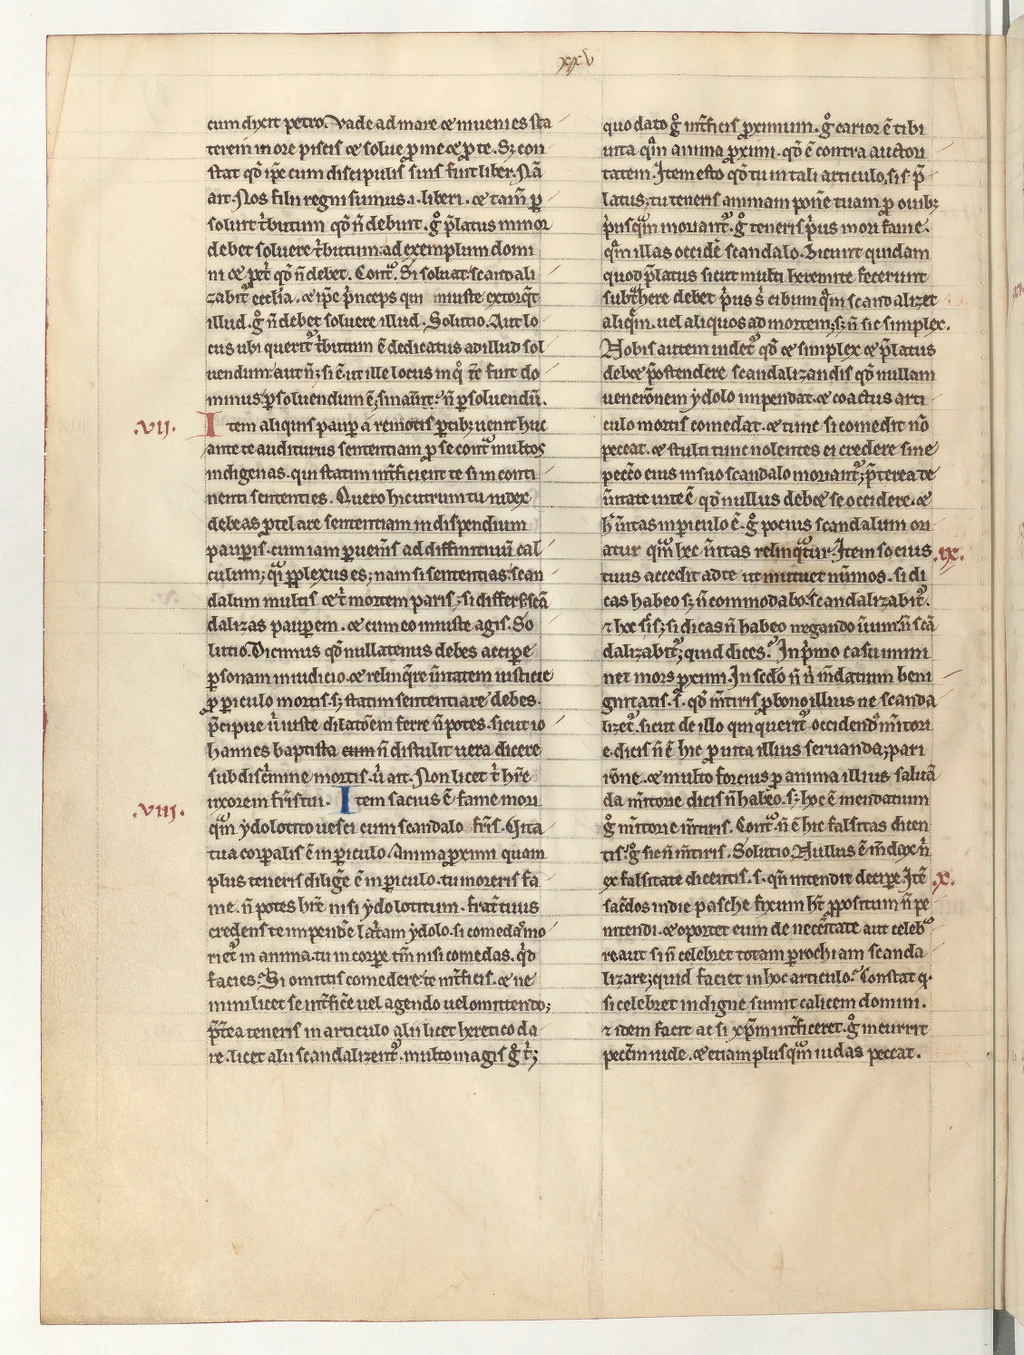 xxv
cum dixit petro. Vade ad mare ⁊ inuenies sta
terem in ore piscis ⁊ solue ꝓ me ⁊ ꝓ te. Sꝫ con
stat qd̄ ip̄e cum discipulis suis fuit liber. Nā
ait. Nos filii regni sumus .i. liberi. ⁊ tam̄ ꝑ
soluit t̄butum qd̄ n̄ debuit. g̊ p̄latus minor
debet soluere t̄butum ad exemplum domi
ni ⁊ pet̄ qd̄ n̄ debet. Cont̄. Si soluat scandali
zabit᷑ eccl̄ia. ⁊ ip̄e p̄nceps qui iniuste extorq̄t
illud. g̊ n̄ debet soluere illud. Solutio. Aut lo
cus ubi querit᷑ t̄butum ē dedicatus ad illud sol
uendum. aut n̄. si ē ut ille locus in q̊ t̄e sunt do
minus ꝑsoluendum ē; sin aut̄ n̄ ꝑsoluendū.
.VII. Item aliquis pauꝑ a remotis ꝑtibꝫ uenit huc
ante te auditurus sententiam ꝓ se cont̄ multos
indigenas. qui statim int̄ficient te si in conti
nenti sententies. Quero hic utrum tu iudex
debeas ꝓtelare sententiam in dispendium
pauꝑis. cum iam ꝑueneris ad diffinitiuū cal
culum; qr̄ ꝑplexus es; nam si sententias scan
dalum multis ⁊ t̄ mortem paris; si differs scā
dalizas pauꝑem. ⁊ cum eo iniuste agis. So
lutio. Dicimus qd̄ nullatenus debes accipe
ꝑsonam in iudicio. ⁊ relinq̄re ūitatem iusticie
ꝓ ꝑiculo mortis. sꝫ statim sententiare debes.
p̄cipue ū iuste dilatōem ferre n̄ potes. sicut io
hannes baptista cum n̄ distulit uera dicere
sub disc̄mine mortis. ū ait. Non licet t̄ hr̄e
.VIII. uxorem fr̄is tui. Item sacius ē fame mori
qm̄ ydolotito uesci cum scandalo fr̄is. Uita
tua corꝑalis ē in ꝑiculo. Anima ꝓximi quam
plus teneris diliḡe ē in ꝑiculo. tu moreris fa
me. n̄ potes hr̄e nisi ydolotitum. frat̄ tuus
credens te impend̄e lat̄am ydolo. si comedas mo
riet᷑ in anima. tu in corpe tm̄ nisi comedas. qd̄
facies? Si omittis comedere te int̄ficis. ⁊ ne
mini licet se int̄fic̄e uel agendo uel omittendo;
p̄t̄ea teneris in articulo alii licet heretico da
re. licet alii scandalizent᷑. multo magis g̊ t̄;
quo dato g̊ int̄ficis ꝓximum. g̊ carior ē tibi
uita qm̄ anima ꝓximi. qd̄ ē contra auctori
tatem. Item esto qd̄ tu in tali articulo sis p̄
latus; tu teneris animam pon̄e tuam ꝓ ouibꝫ
p̄usqm̄ moriant᷑. g̊ teneris p̄us mori fame.
qm̄ illas occid̄e scandalo. Dicunt quidam
quod p̄latus sicut multi heremite fecerunt
subt̄here debet p̄us s̄ cibum qm̄ scandalizet
aliq̄m. uel aliquos ad mortem; sꝫ n̄ sic simplex.
Nobis autem uidet᷑ qd̄ ⁊ simplex ⁊ p̄latus
debet p̄ostendere scandalizandis qd̄ nullam
ueneronem ydolo impendat. ⁊ coactus arti
culo mortis comedat. ⁊ tunc si comedit nō
peccat. ⁊ stulti tunc nolentes ei credere sine
pecc̄o eius in suo scandalo moriant᷑; p̄terea de
ūitate uite ē qd̄ nullus debet se occidere. ⁊
h̄ ūitas in ꝑiculo ē. g̊ pocius scandalum ori
atur qm̄ hec ūitas relinq̄tur. Item socius .ix.
tuus accedit ad te ut mutuet nūmos. si di
cas habeo sꝫ n̄ commodabo. scandalizabit᷑.
⁊ hoc s̄is; si dicas n̄ habeo negando uīum n̄ scā
dalizabit᷑; quid dices? In p̄mo casu immi
net mors ꝓximi. In sed̄o n̄ ū m̄datum beni
gnitatis. s̄. qd̄ m̄tiris ꝓ bono illius ne scanda
lizet᷑. sicut de illo qui querit᷑ occidend᷑ m̄tiri
e. dicis n̄ ē hic ꝓ uita illius seruanda; pari
rōne. ⁊ multo forcius ꝓ anima illius saluā
da m̄tiorie dicis n̄ habeo. sꝫ hoc ē mendatium
g̊ m̄tiorie m̄tiris. Cont̄. n̄ ē hic falsitas dicen
tis. g̊ sic n̄ m̄tiris. Solutio. Nullus ē m̄dax n̄
ex falsitate dicentis. s. qn̄ intendit decipe. Itē .x.
sac̄dos in die pasche fixum hr̄ ꝓpositum n̄ pe
nitendi. ⁊ oportet eum de nec̄itate aut celeb
reaut si n̄ celebret totam parrochiam scanda
lizare; quid faciet in hoc articulo? Constat qͥ
si celebret indigne sumit calicem domini.
⁊ idem facit ac si xp̄m int̄ficeret. g̊ incurrit
pecc̄m iude. ⁊ etiam plusqm̄ iudas peccat.